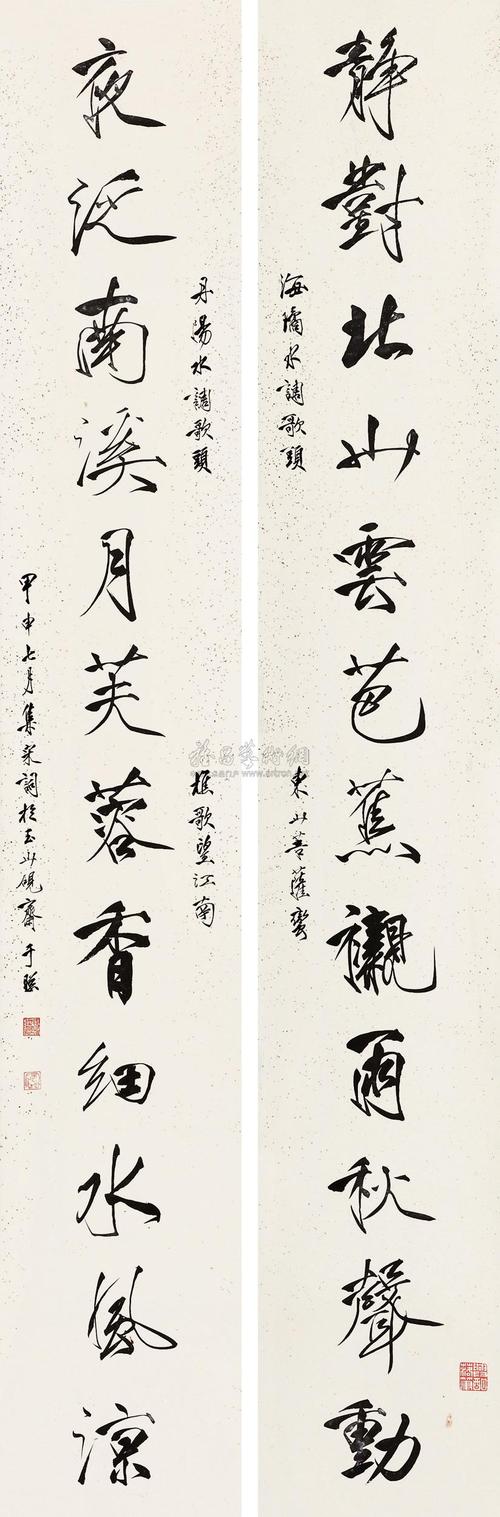 靜對北山雲芭蕉襯雨秋聲動
海璚水調歌頭
東山菩薩蠻
夜泛南溪月芙蓉香細水風涼
丹陽水調歌頭
樵歌望江南
甲申七月集宋詞於玉山硯齋
雅昌藝術網